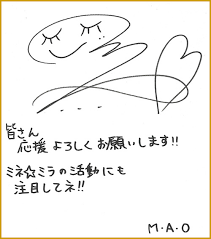 皆さん
応援 よろしく お願いします!!
ミネ☆ミラ の 活動 にも
注目してネ!!
M・A・O